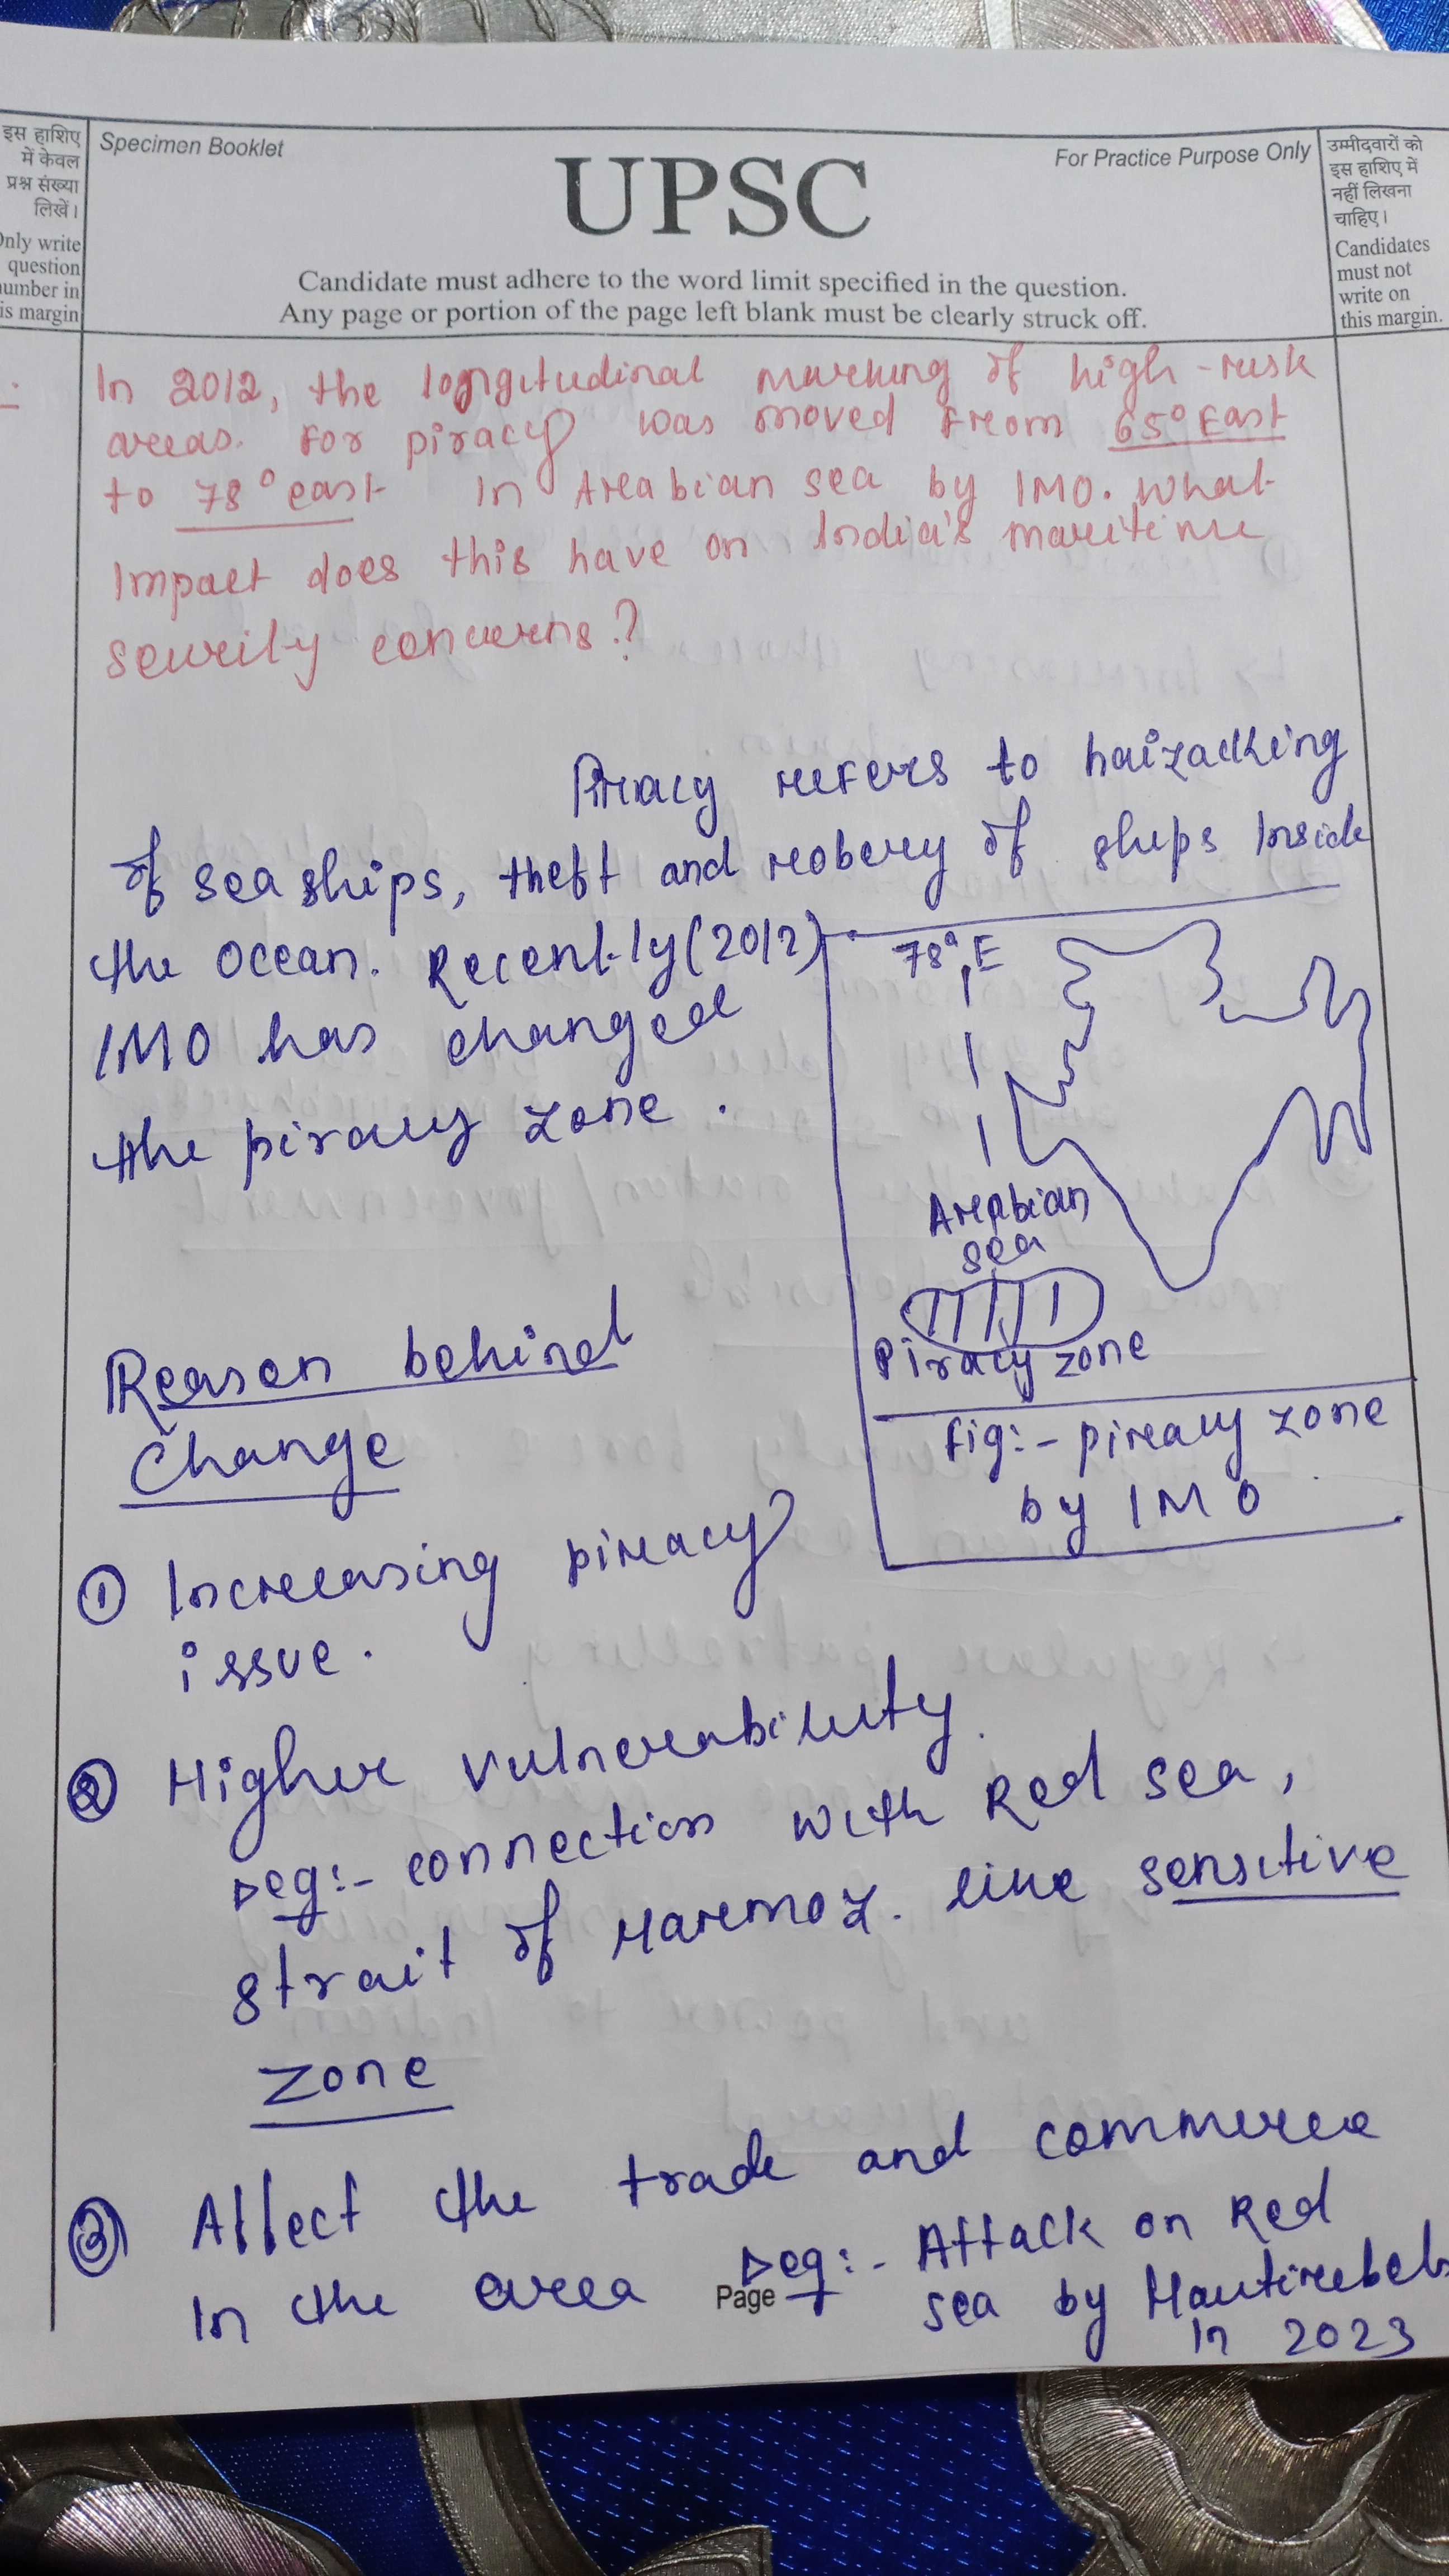 इस हाशिए
में केवल
प्रश्न संख्या
लिखें।
Only write
question
number in
is margin
Specimen Booklet
UPSC
For Practice Purpose Only
Candidate must adhere to the word limit specified in the question.
Any page or portion of the page left blank must be clearly struck off.
उम्मीदवारों को
इस हाशिए में
नहीं लिखना
चाहिए।
Candidates
must not
write on
this margin.
In 2012, the longitudinal marking of high-risk
areas. for piracy was moved from 65° East
to 78° east in Arabian sea by IMO. What
Impact does this have on India's maritime
security concerns?
Piracy refers to haizacking
of sea ships, theft and robery of ships Inside
the ocean. Recently (2012)
IMO has changed
the piracy zone.
78° E
Arabian
sea
Piracy zone
fig:- piracy zone
by IMO
Reason behind
Change
① Increasing piracy
issue.
② Higher vulnerability.
eg:- connection with Red sea,
strait of Harmoz. like sensitive
zone
③ Affect the trade and commerce
In the area eg:- Attack on Red
sea by Hauti rebels
In 2023
Page